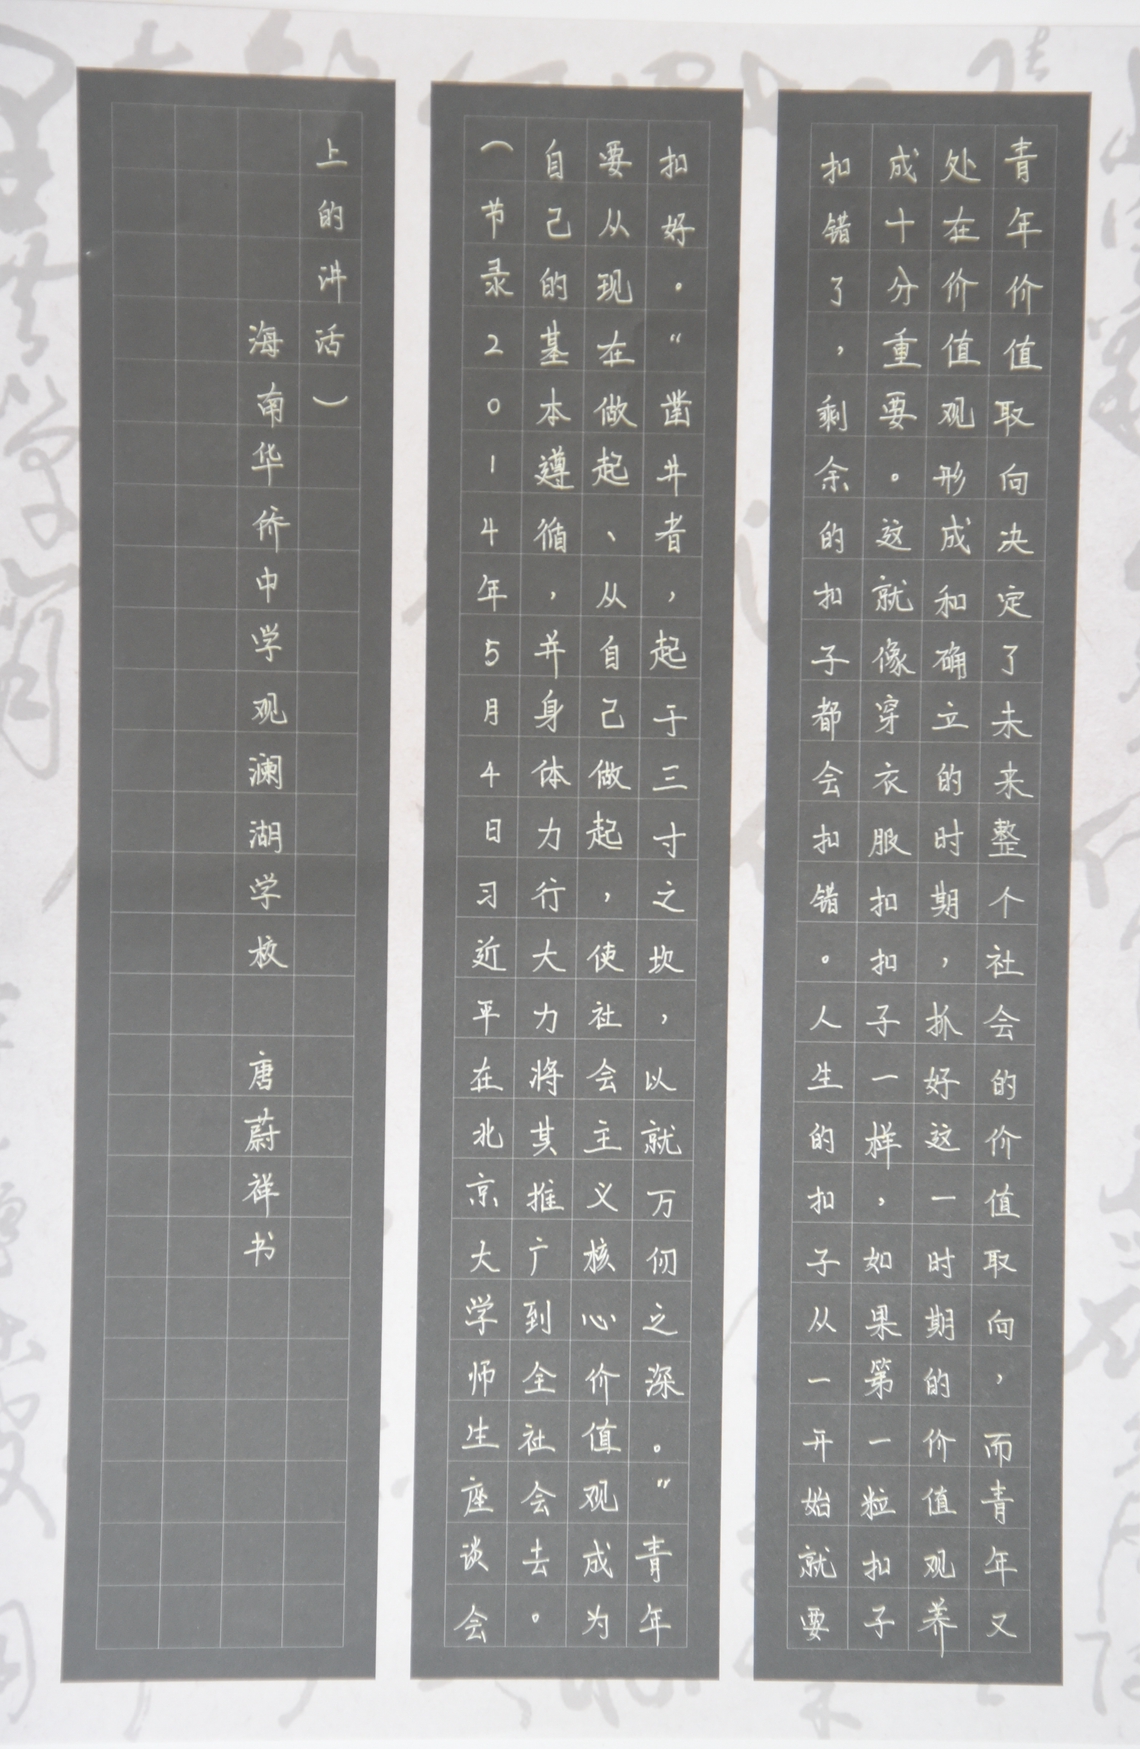 青年价值取向决定了未来整个社会的价值取向，而青年又
处在价值观形成和确立的时期，抓好这一时期的价值观养
成十分重要。这就像穿衣服扣扣子一样，如果第一粒扣子
扣错了，剩余的扣子都会扣错。人生的扣子从一开始就要
扣好。“凿井者，起于三寸之坎，以就万仞之深。”青年
要从现在做起、从自己做起，使社会主义核心价值观成为
自己的基本遵循，并身体力行大力将其推广到全社会去。
（节录2014年5月4日习近平在北京大学师生座谈会
上的讲话）
海南华侨中学观澜湖学校 唐蔚祥书